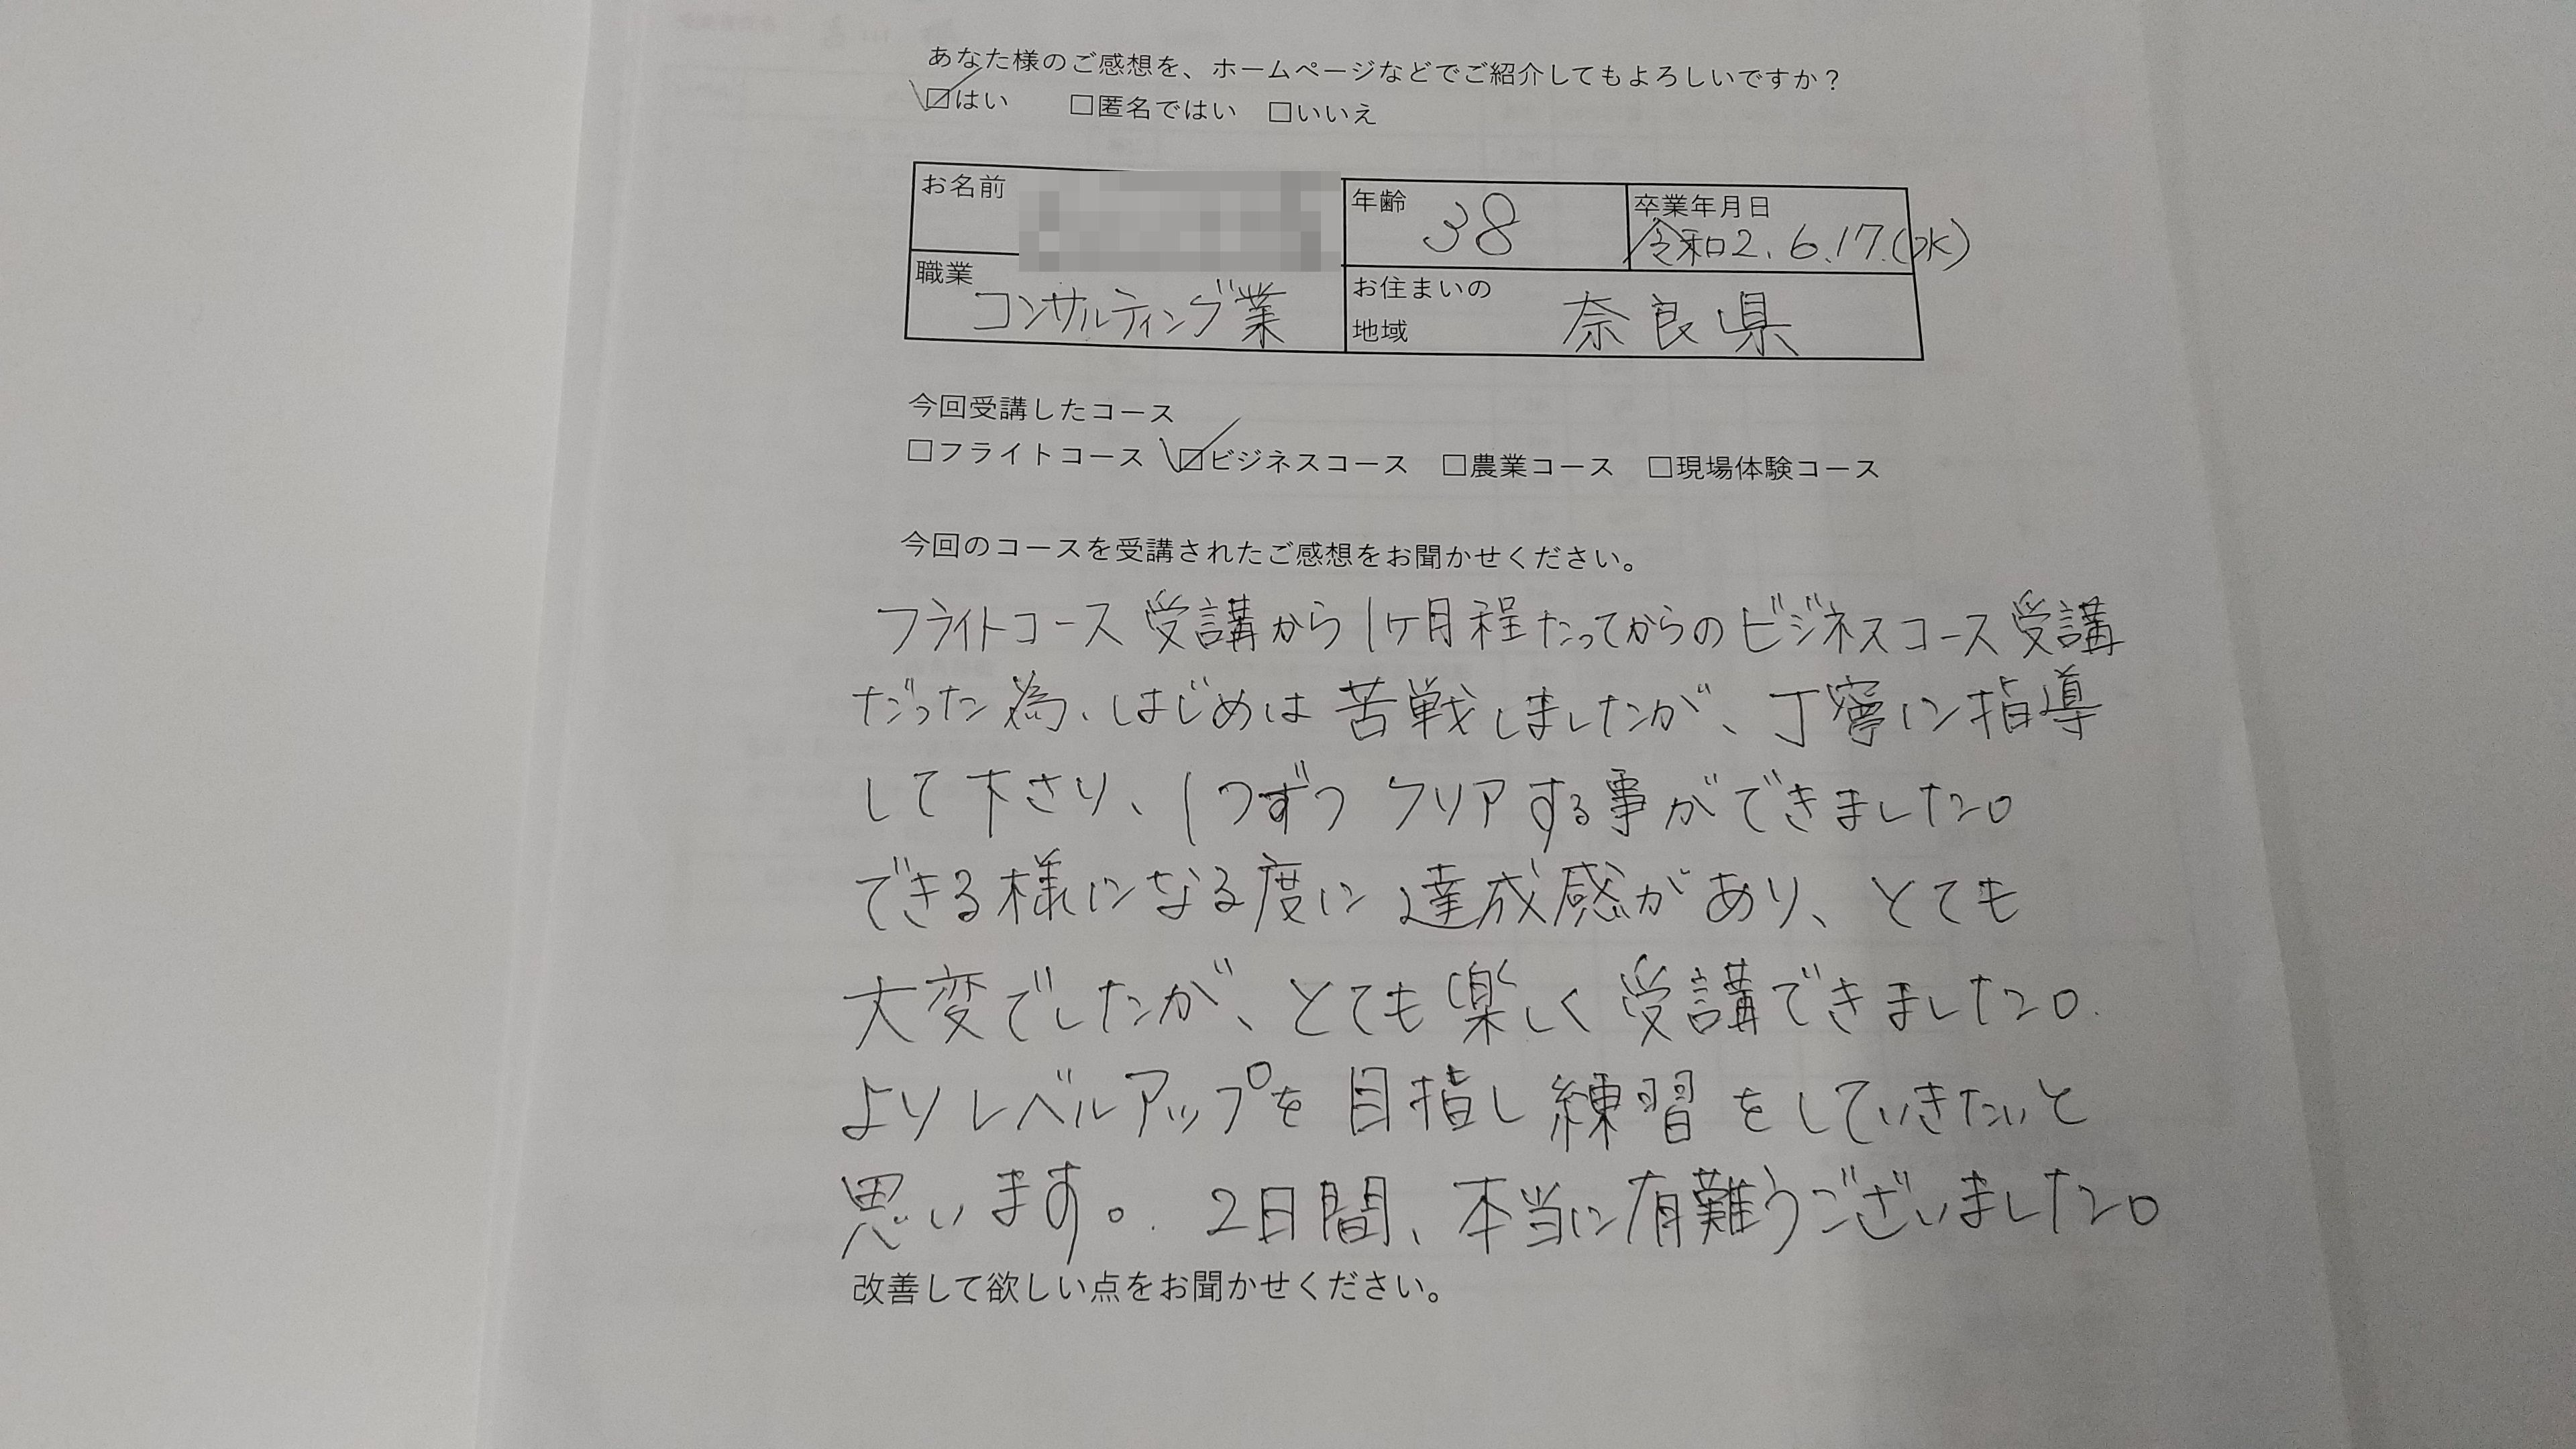 あなた様のご感想を、ホームページなどでご紹介してもよろしいですか？
☑はい　□匿名ではい　□いいえ
お名前
年齢 38
卒業年月日
令和2.6.17.(水)
職業 コンサルティング業
お住まいの
地域 奈良県
今回受講したコース
□フライトコース ☑ビジネスコース □農業コース □現場体験コース
今回のコースを受講されたご感想をお聞かせください。
フライトコース受講から1ヶ月程たってからのビジネスコース受講
だった為、はじめは苦戦しましたが、丁寧に指導
して下さり、1つずつクリアする事ができました。
できる様になる度に達成感があり、とても
大変でしたが、とても楽しく受講できました。
よりレベルアップを目指し練習をしていきたいと
思います。2日間、本当に有難うございました。
改善して欲しい点をお聞かせください。